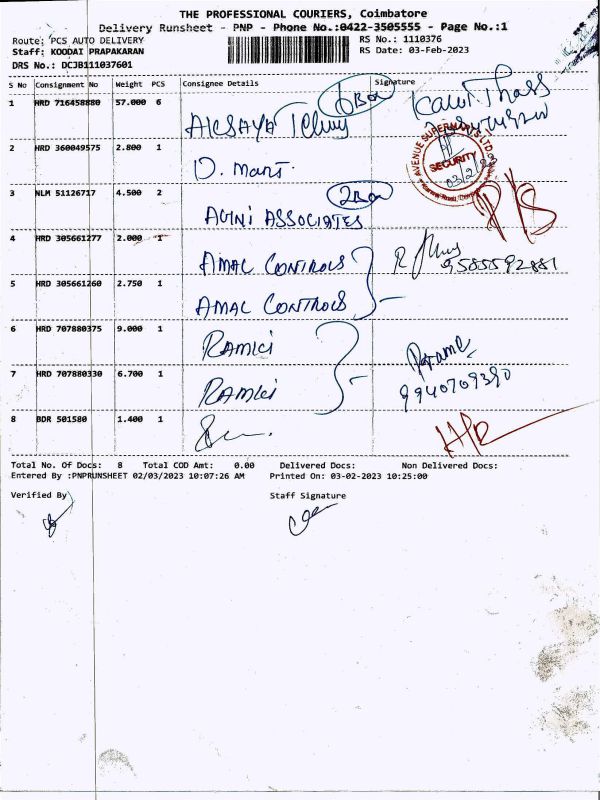 THE PROFESSIONAL COURIERS, Coimbatore
Delivery Runsheet - PNP - Phone No.:0422-3505555 - Page No.:1
Route: PCS AUTO DELIVERY
RS No.: 1110376
Staff: KOODAI PRAPAKARAN
RS Date: 03-Feb-2023
DRS No.: DCJB111037601
S No Consignment No Weight PCS Consignee Details Signature
1 HRD 716458880 57.000 6 6 Box
AKSAYA
2 HRD 360049575 2.800 1 D. Mart.
AVENUE SUPERMARTS LTD
SECURITY
03/2/23
3 NLM 51126717 4.500 2 2 Box
AGNI ASSOCIATES
4 HRD 305661277 2.000 1 AMAL CONTROLS
9585592881
5 HRD 305661260 2.750 1 AMAL CONTROLS
6 HRD 707880375 9.000 1
9940709390
7 HRD 707880330 6.700 1
8 BDR 501580 1.400 1
Total No. Of Docs: 8 Total COD Amt: 0.00 Delivered Docs: Non Delivered Docs:
Entered By :PNPRUNSHEET 02/03/2023 10:07:26 AM Printed On: 03-02-2023 10:25:00
Verified By Staff Signature